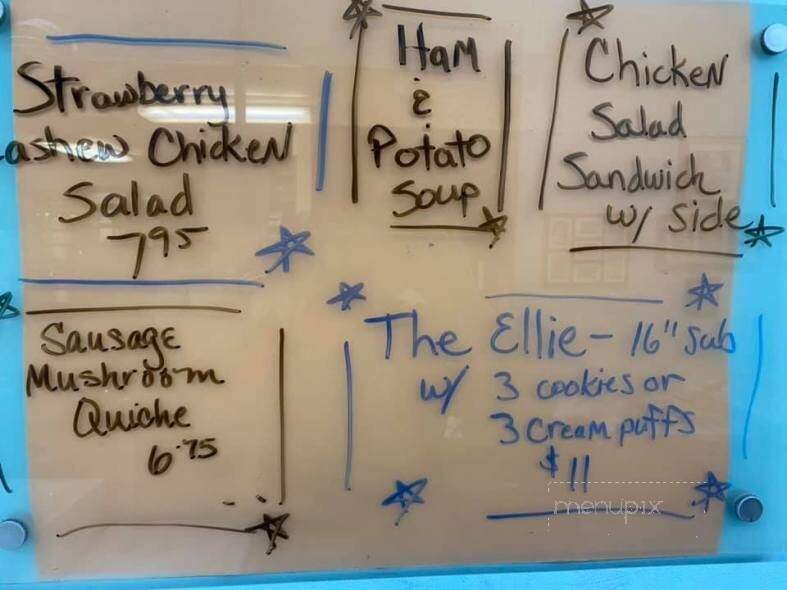 Strawberry
ashew Chicken
Salad
7.95
Ham
&
Potato
Soup
Chicken
Salad
Sandwich
w/ side
Sausage
Mushroom
Quiche
6.75
The Ellie - 16" sub
w/ 3 cookies or
3 cream puffs
$11
menupix